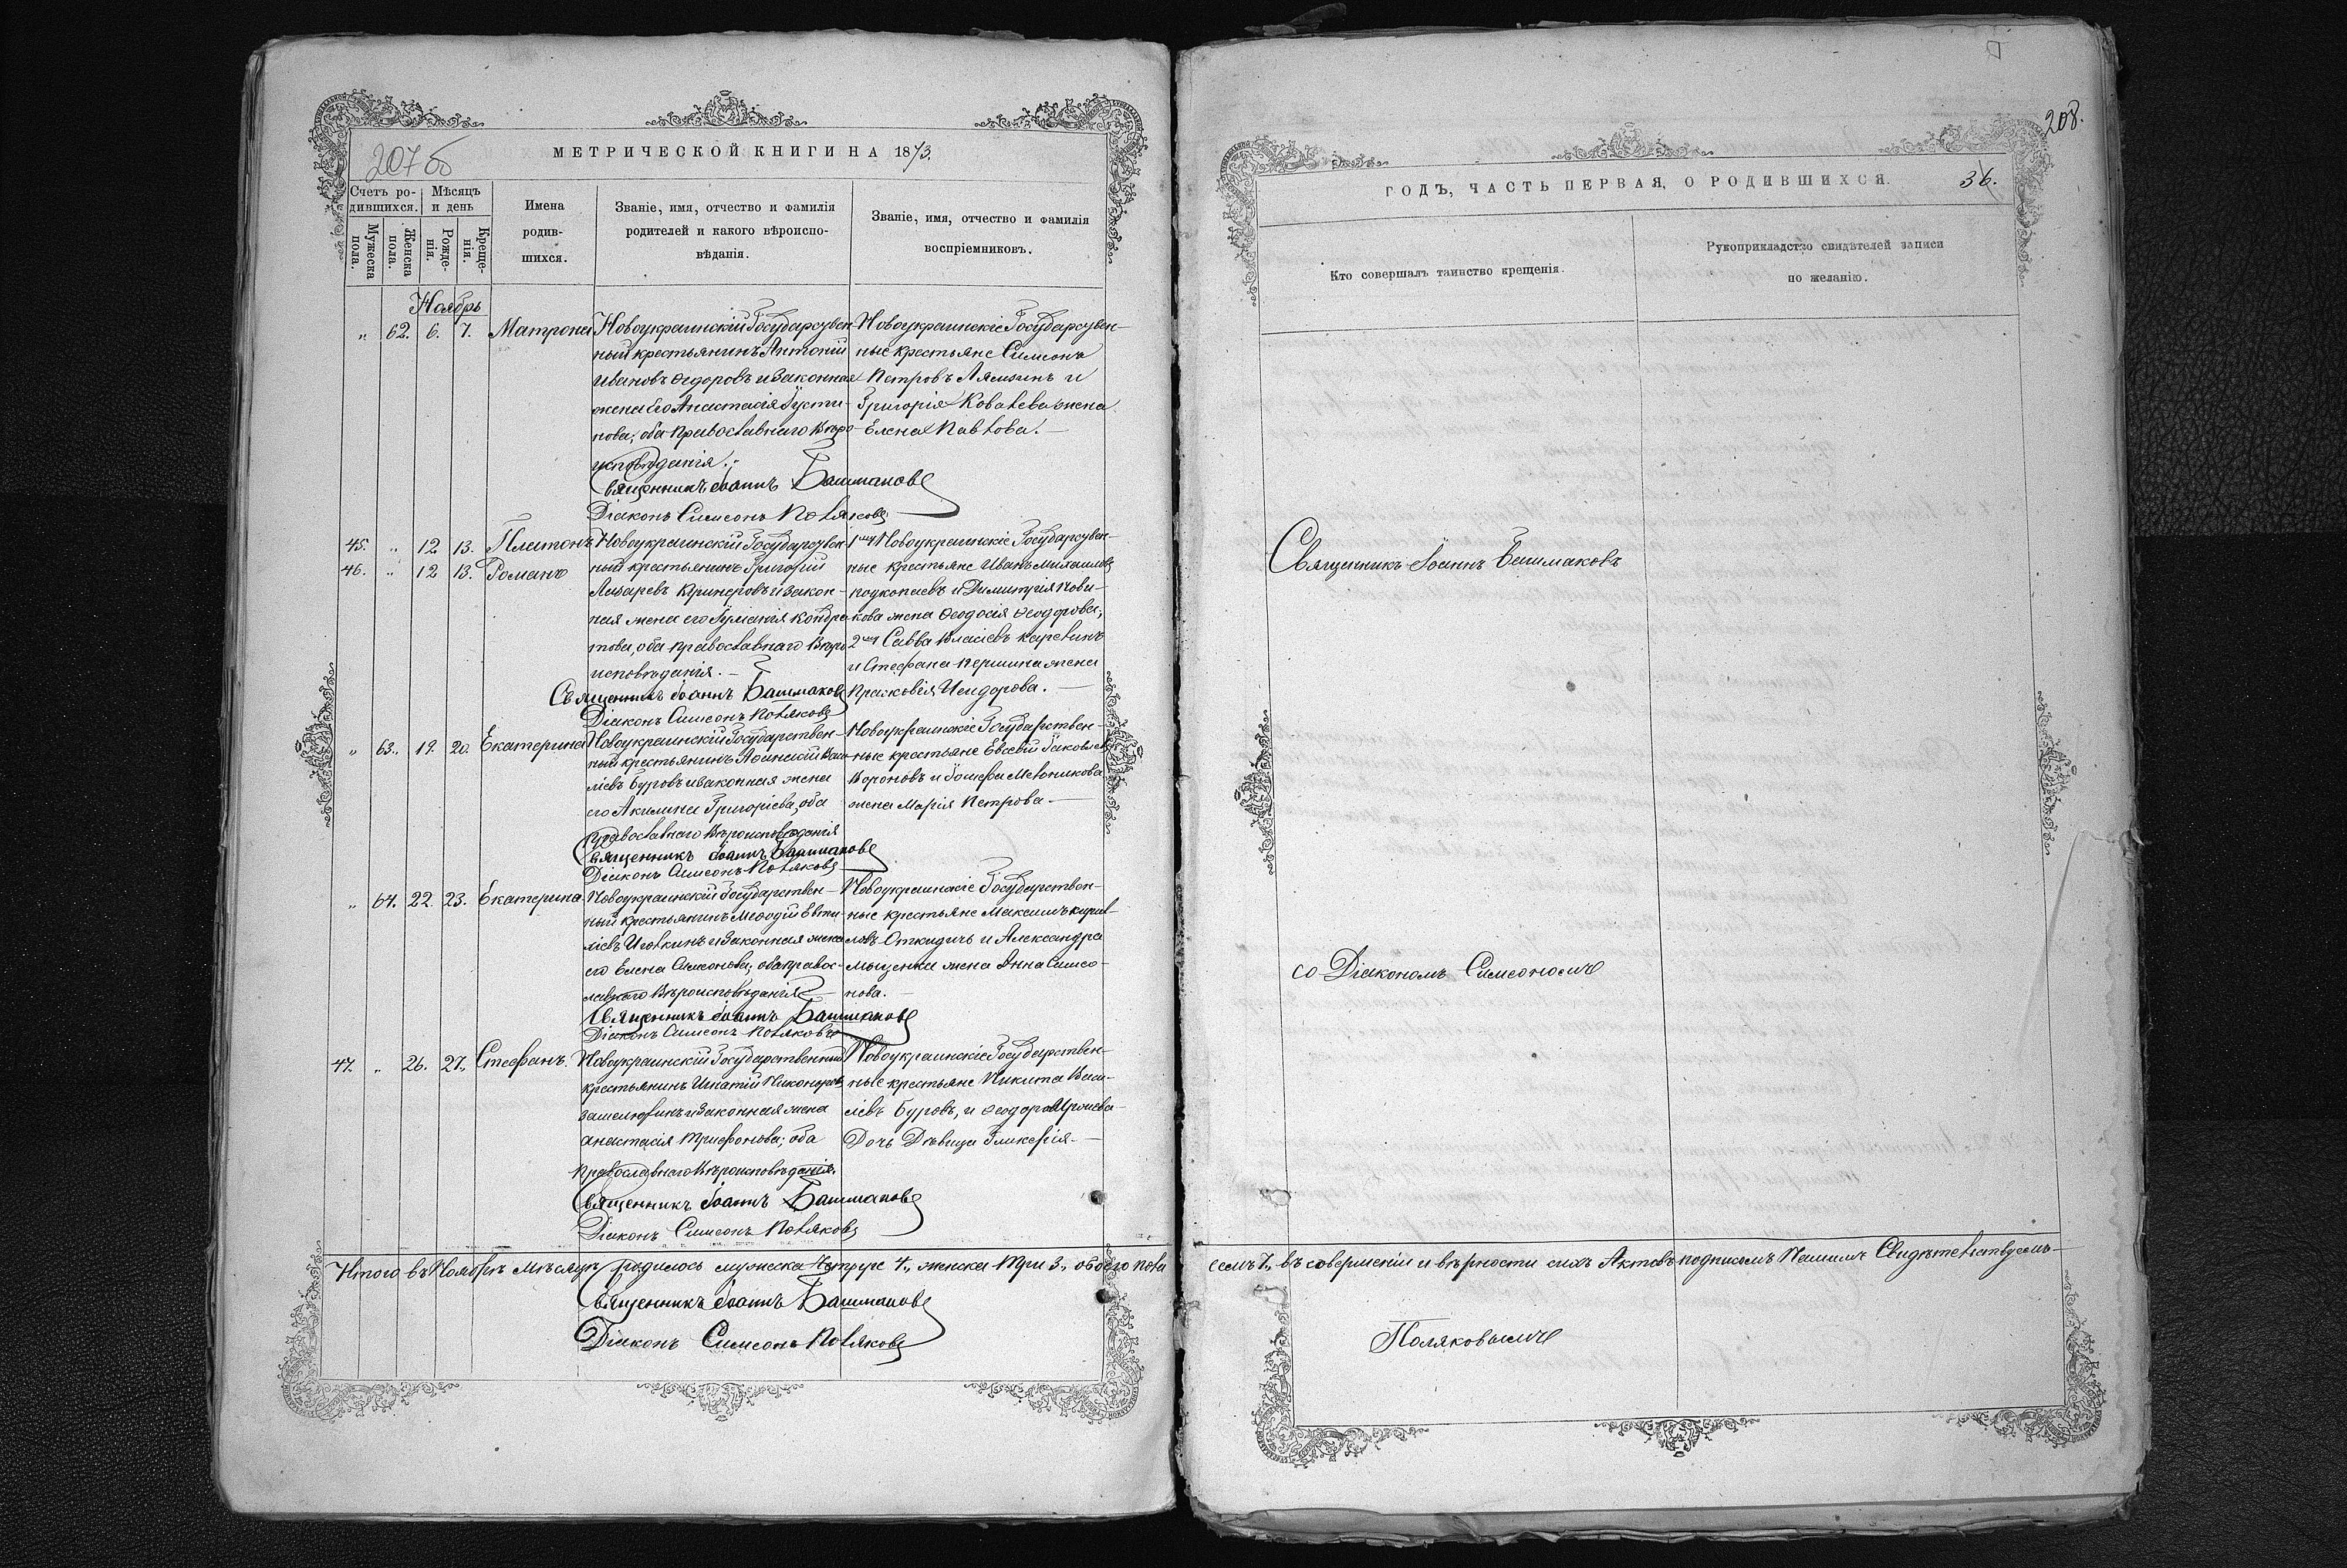 207 об
МЕТРИЧЕСКОЙ КНИГИ НА 1873.
Счетъ ро-
дившихся.
Мѣсяцъ
и день
Мужеска
пола.
Женска
пола.
Рожде-
нія.
Креще-
нія.
Имена
родив-
шихся.
Званіе, имя, отчество и фамилія
родителей и какого вѣроиспо-
вѣданія.
Званіе, имя, отчество и фамилія
воспріемниковъ.
Ноябрь
„ 62. 6. 7. Матрона
Новоукраинскій Государствен-
ный крестьянинъ Антоній
Ивановъ Ѳедоровъ и законная
жена его Анастасія Густи-
нова, оба православнаго вѣро-
исповѣданія.
Священникъ Іоаннъ Башмаковъ
Діаконъ Симеонъ Поляковъ
Новоукраинскіе Государствен-
ные крестьяне Симеонъ
Петровъ Лямзинъ и
Григорія Ковалева жена
Елена Павлова.
45. „ 12 13. Платонъ
46. „ 12 13. Романъ
Новоукраинскій Государствен-
ный крестьянинъ Григорій
Лазаревъ и закон-
ная жена его Гуліанія Кондра-
това, оба православнаго вѣро-
исповѣданія.
Священникъ Іоаннъ Башмаковъ
Діаконъ Симеонъ Поляковъ
1му Новоукраинскіе Государствен-
ные крестьяне Иванъ Михаиловъ
Подкопаевъ и Димитрія Нови-
кова жена Ѳеодосія Ѳеодорова;
2му Савва Власіевъ Карелинъ
и Стефана Першина жена
Прасковія Исидорова.
„ 63. 19. 20. Екатерина
Новоукраинскій Государствен-
ный крестьянинъ Васи-
ліевъ Буровъ и законная жена
его Акилина Григоріева, оба
православнаго вѣроисповѣданія
Священникъ Іоаннъ Башмаковъ
Діаконъ Симеонъ Поляковъ
Новоукраинскіе Государствен-
ные крестьяне Евсевій Іаковлевъ
Вороновъ и Іосифа Мельникова
жена Марія Петрова.
„ 64. 22. 23. Екатерина
Новоукраинскій Государствен-
ный крестьянинъ Меѳодій Евти-
ліевъ Иголкинъ и законная жена
его Елена Симеонова, оба правос-
лавнаго вѣроисповѣданія
Священникъ Іоаннъ Башмаковъ
Діаконъ Симеонъ Поляковъ
Новоукраинскіе Государствен-
ные крестьяне Максимъ Кирил-
ловъ Откидичь и Александра
жена Анна Симео-
нова.
47. „ 26. 27. Стефанъ.
Новоукраинскій Государственный
крестьянинъ Игнатій Никоноровъ
и законная жена
Анастасія Трифонова; оба
православнаго вѣроисповѣданія.
Священникъ Іоаннъ Башмаковъ
Діаконъ Симеонъ Поляковъ
Новоукраинскіе Государствен-
ные крестьяне Никита Васи-
ліевъ Буровъ, и Ѳеодора
Дочь Дѣвица Гликерія.
Итого въ Ноябрѣ мѣсяцѣ родилось мужеска Четыре 4., женска три 3., обоего пола
Священникъ Іоаннъ Башмаковъ
Діаконъ Симеонъ Поляковъ
208.
ГОДЪ, ЧАСТЬ ПЕРВАЯ, О РОДИВШИХСЯ.
36.
Кто совершалъ таинство крещенія.
Рукоприкладство свидѣтелей записи
по желанію.
Священникъ Іоаннъ Башмаковъ
со Діакономъ Симеономъ
семь 7., въ совершеніи и вѣрности сихъ Актовъ подписомъ Нашимъ Свидѣтельствуемъ
Поляковымъ